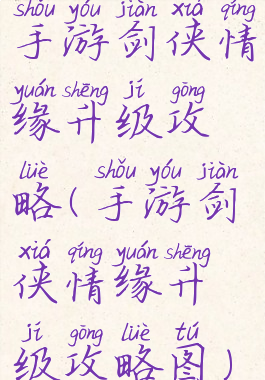 shǒu yóu jiàn xiá qíng
手游剑侠情
yuán shēng jí gōng
缘升级攻
lüè shǒu yóu jiàn
略(手游剑
xiá qíng yuán shēng
侠情缘升
jí gōng lüè tú
级攻略图)